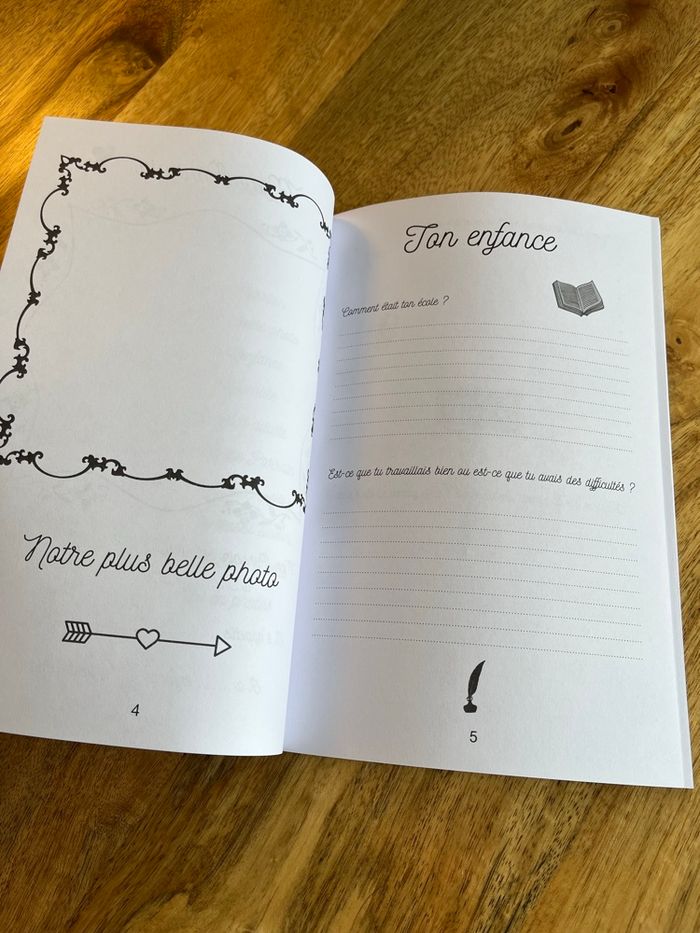 Notre plus belle photo
4
Ton enfance
Comment était ton école ?
Est-ce que tu travaillais bien ou est-ce que tu avais des difficultés ?
5